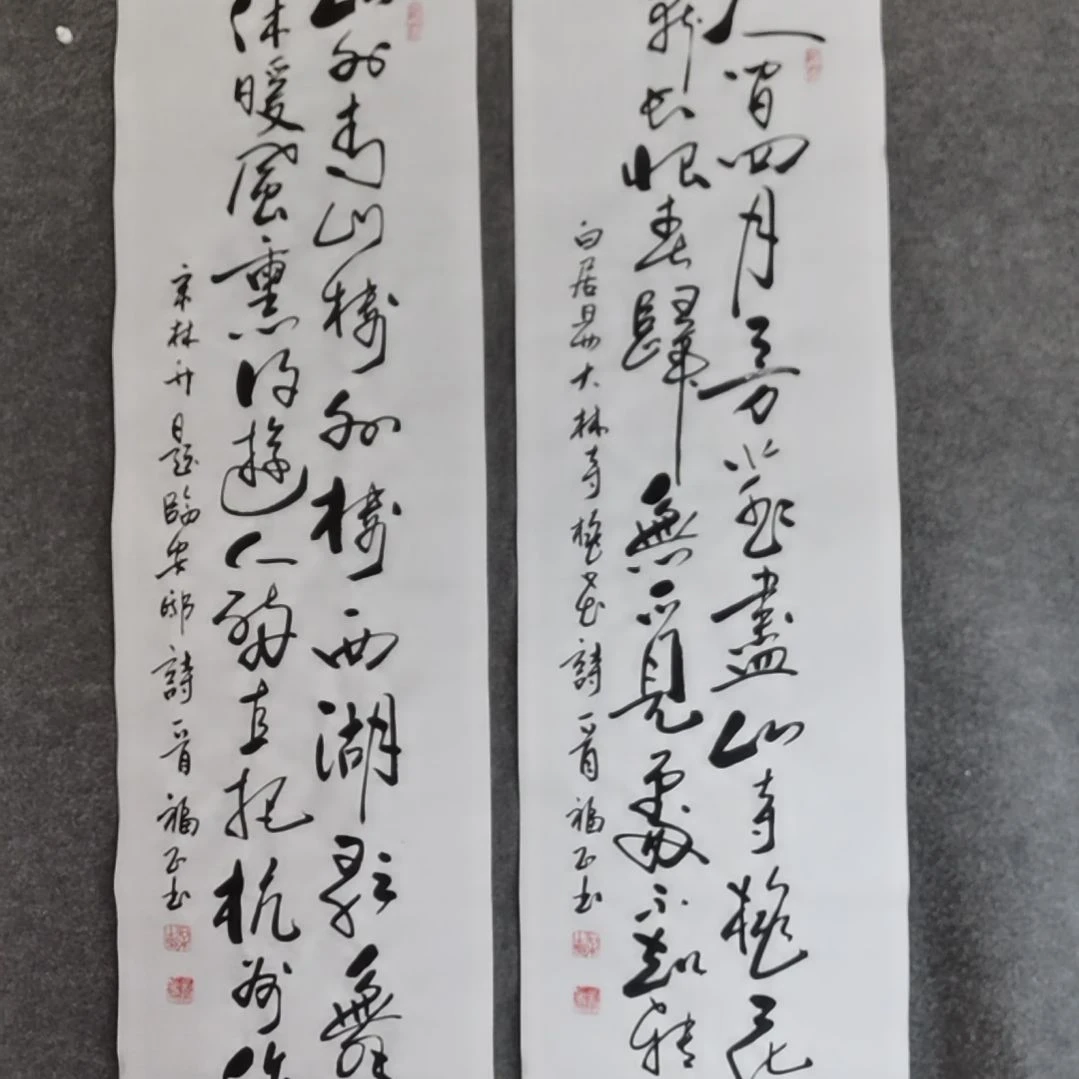 人间四月芳菲盡山寺桃花
长恨春歸無覔處不知轉
白居易大林寺桃花詩一首福正书
山外青山樓外樓西湖歌舞
休暖風熏得遊人醉直把杭州作
宋林升題臨安邸詩一首福正书